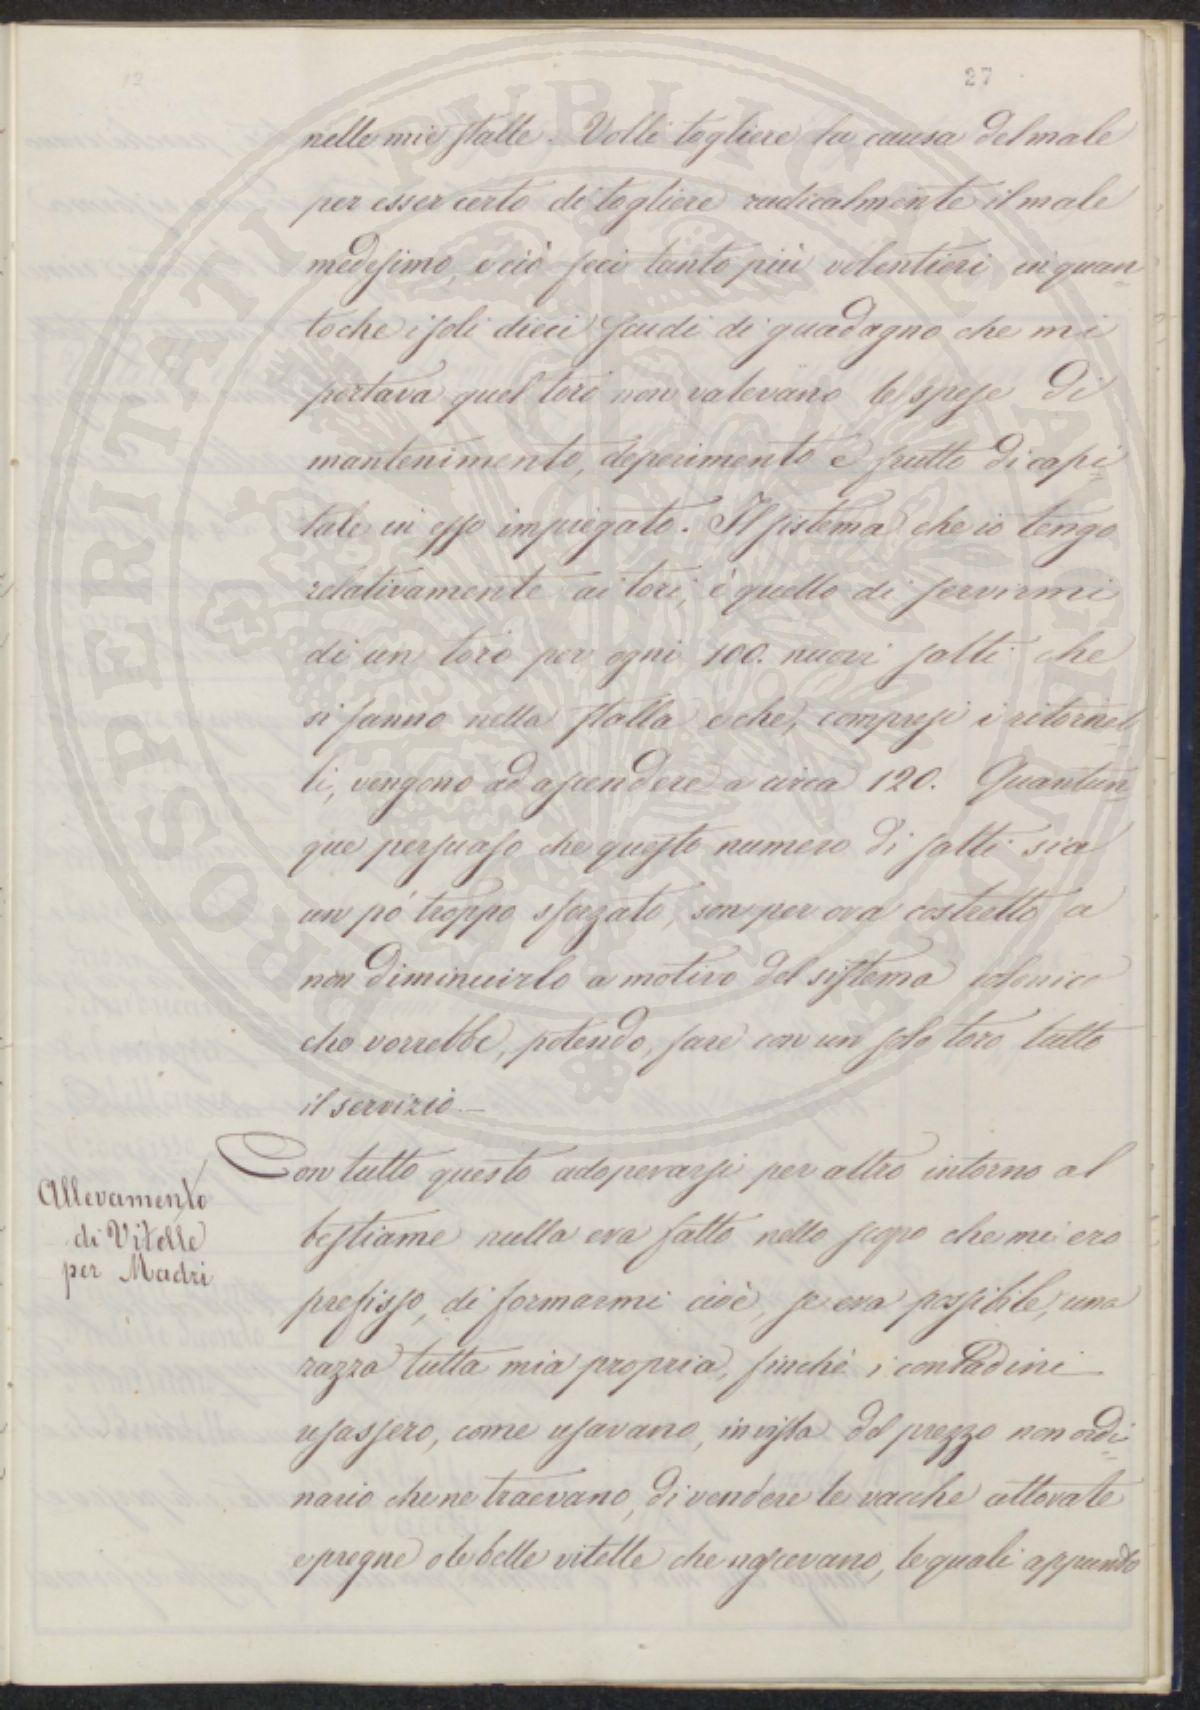 27
nelle mie stalle. Volli togliere la causa del male
per esser certo di togliere radicalmente il male
medesimo, e ciò feci tanto più volentieri in quan=
toche i soli dieci scudi di guadagno che mi
portava quel toro non valevano le spese di
mantenimento, deperimento e frutto di capi=
tale in esso impiegato. Il sistema che io tengo
relativamente ai tori, è quello di servirmi
di un toro per ogni 100. nuovi salti che
si fanno nella stalla e che, compresi i ritornel=
li, vengono ad ascendere a circa 120. Quantun=
que persuaso che questo numero di salti sia
un pó troppo sforzato, son per ora costretto a
non diminuirlo a motivo del sistema colonico
che vorrebbe, potendo, fare con un solo toro tutto
il servizio —
Allevamento
di Vitelle
per Madri
Con tutto questo adoperarsi per altro intorno al
bestiame nulla era fatto nello scopo che mi ero
prefisso, di formarmi cioè, se era possibile, una
razza tutta mia propria, finchè i contadini
usassero, come usavano, in vista del prezzo non ordi=
nario che ne traevano, di vendere le vacche attorate
e pregne o le belle vitelle che nascevano, le quali appunto
PROSPERITATI PUBLICAE AUGENDAE